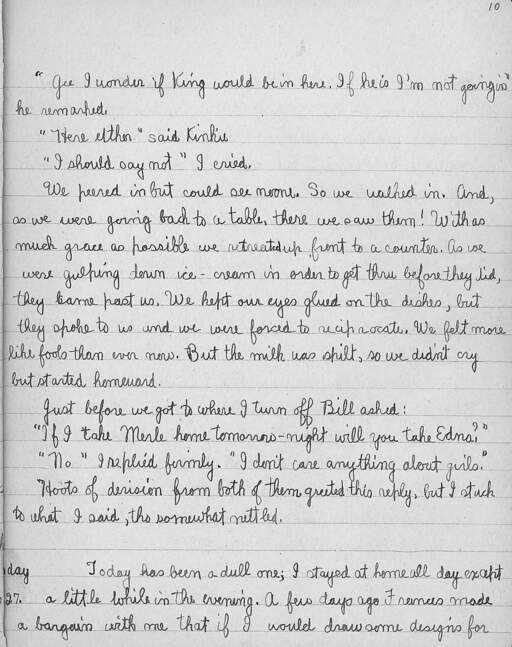 10
"Gee I wonder if King would be in here. If he is I'm not going in"
he remarked.
"Here either" said Kinkie
"I should say not" I cried.
We peered in but could see no one. So we walked in. And,
as we were going back to a table, there we saw them! With as
much grace as possible we retreated up front to a counter. As we
were gulping down ice-cream in order to get thru before they did,
they came past us. We kept our eyes glued on the dishes, but
they spoke to us and we were forced to reciprocate. We felt more
like fools than ever now. But the milk was spilt, so we didn't cry
but started homeward.
Just before we got to where I turn off Bill asked:
"If I take Merle home tomorrow-night will you take Edna?"
"No" I replied firmly. "I don't care anything about girls."
Hoots of derision from both of them greeted this reply, but I stuck
to what I said, tho somewhat nettled.
day Today has been a dull one; I stayed at home all day except
27. a little while in the evening. A few days ago Frances made
a bargain with me that if I would draw some designs for